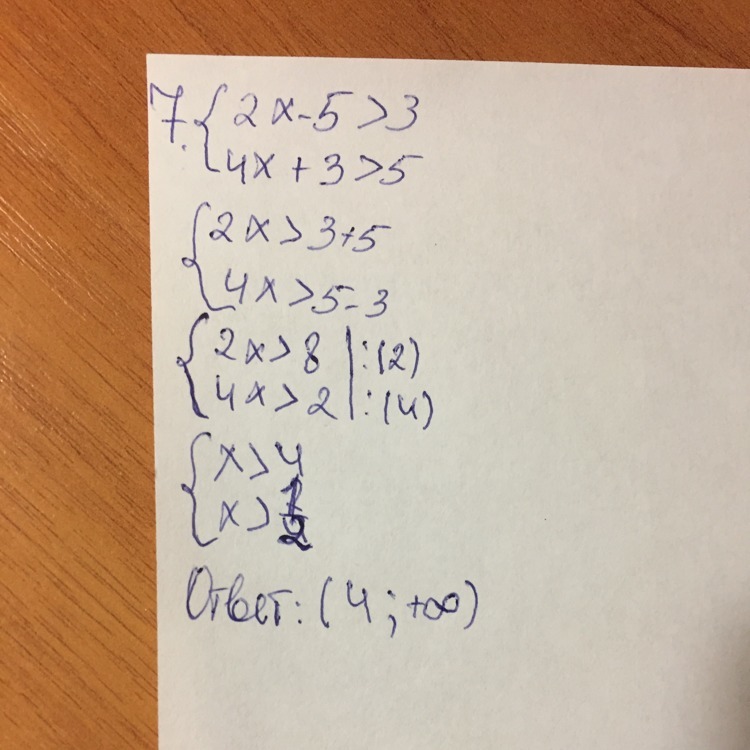 7. { 2x-5>3
4x+3>5
{ 2x>3+5
4x>5-3
{ 2x>8 | :(2)
4x>2 | :(4)
{ x>4
x>1/2
Ответ: (4; +∞)